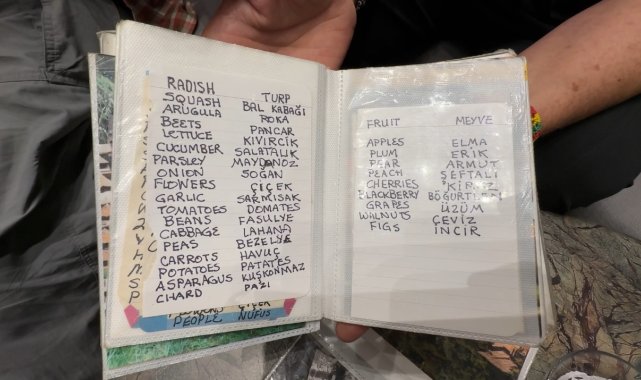 RADISH TURP
SQUASH BAL KABAĞI
ARUGULA ROKA
BEETS PANCAR
LETTUCE KIVIRCIK
CUCUMBER SALATALIK
PARSLEY MAYDANOZ
ONION SOĞAN
FLOWERS ÇIÇEK
GARLIC SARMISAK
TOMATOES DOMATES
BEANS FASULYE
CABBAGE LAHANA
PEAS BEZELYE
CARROTS HAVUÇ
POTATOES PATATES
ASPARAGUS KUŞKONMAZ
CHARD PAZI
PEOPLE NÜFUS
FRUIT MEYVE
APPLES ELMA
PLUM ERIK
PEAR ARMUT
PEACH ŞEFTALI
CHERRIES KIRAZ
BLACKBERRY BÖĞÜRTLEN
GRAPES ÜZÜM
WALNUTS ÇEVIZ
FIGS INCIR